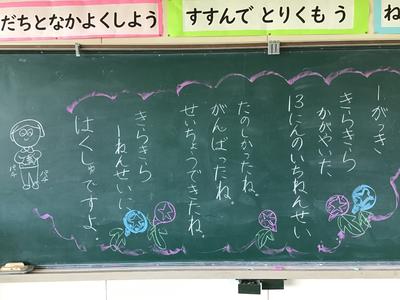 だちとなかよくしよう
すすんで とりくもう
ね
一がっき
きらきら
かがやいた
13にんのいちねんせい
たのしかったね。
がんばったね。
せいちょうできたね。
きらきら
一ねんせいに
はくしゅですよ。